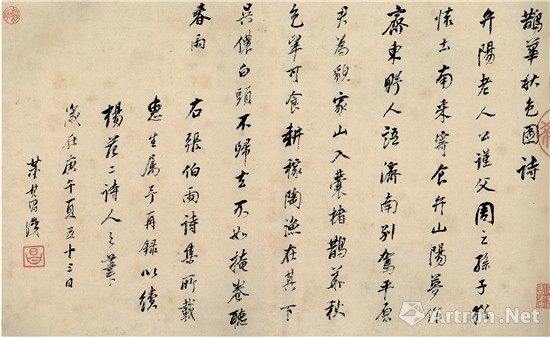 鵲華秋色圖詩
弁陽老人公謹父周之孫子猶
懷土南來寄食弁山陽夢作
齊東野人語濟南別駕平原
君為貌家山入囊楮鵲華秋
色翠可食耕稼陶漁在其下
吳儂白頭不歸去不如掩卷聽
春雨 右張伯雨詩集所載
惠生屬予再錄以續
楊范二詩人之筆
歲在庚午夏五十三日
董其昌識
昌
Artron.Net